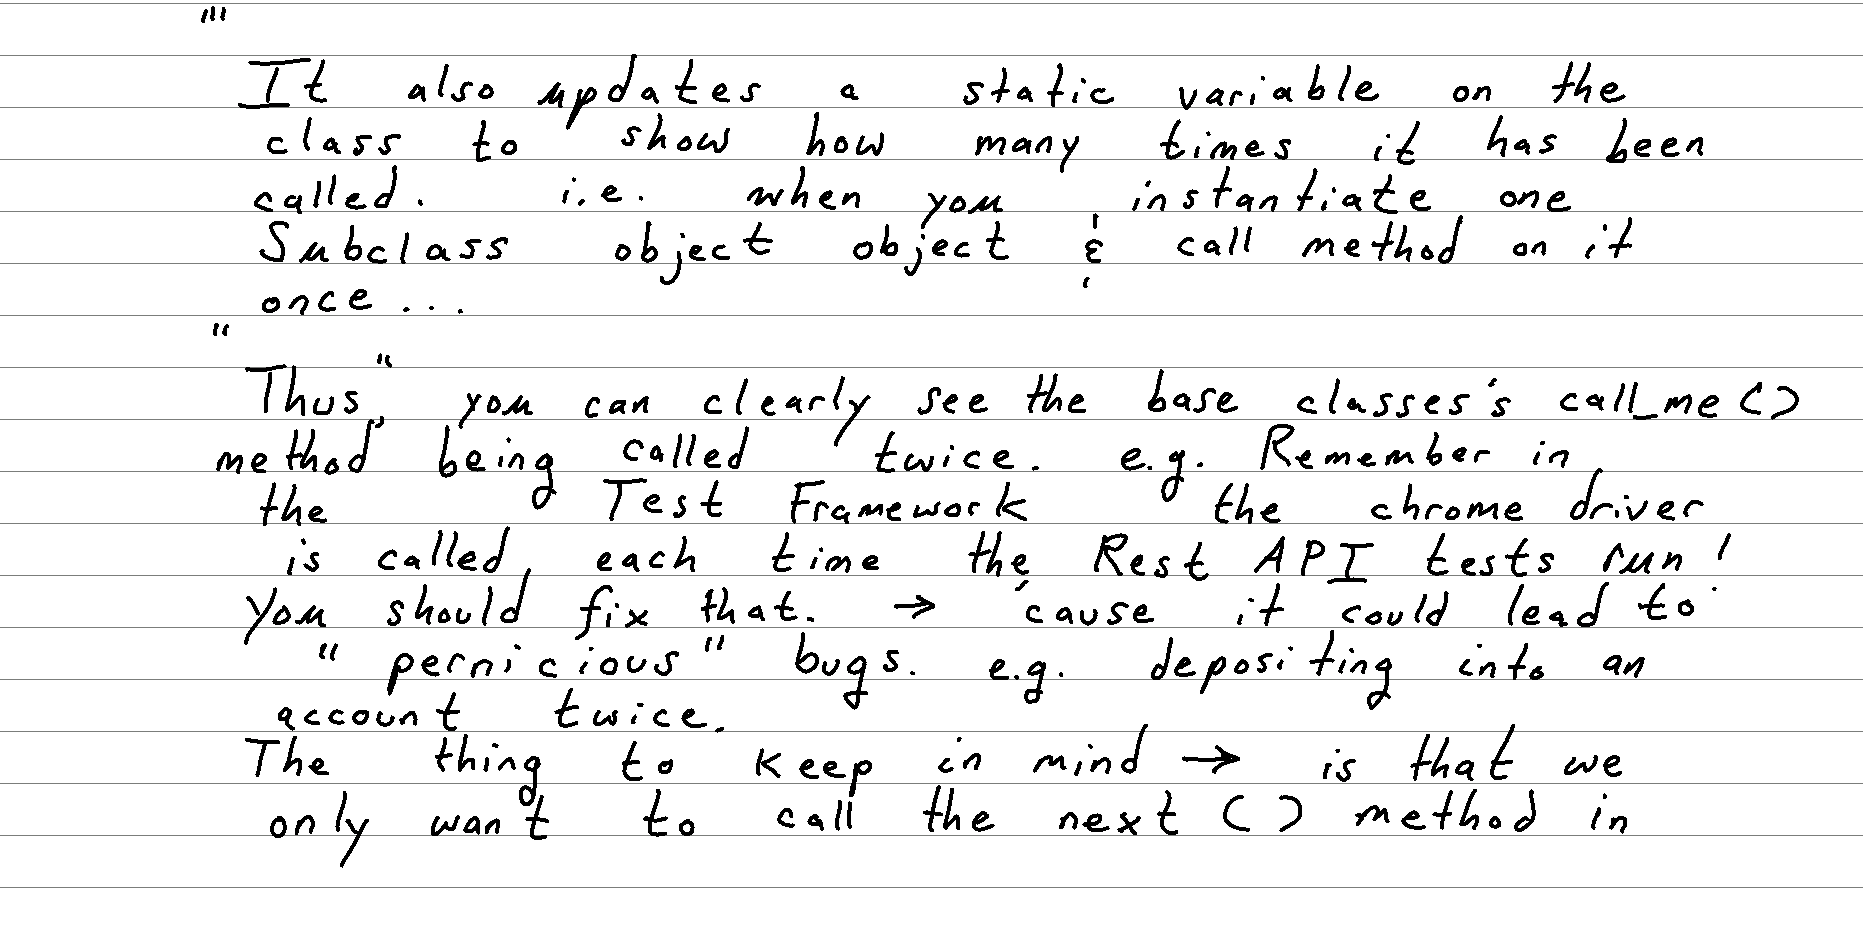 "'
It also updates a static variable on the
class to show how many times it has been
called. i.e. when you instantiate one
Subclass object object & call method on it
once ...
"
"Thus," you can clearly see the base classes's call_me()
method being called twice. e.g. Remember in
the Test Framework the chrome driver
is called, each time the Rest API tests run!
You should fix that. → 'cause it could lead to
"pernicious" bugs. e.g. depositing into an
account twice.
The thing to keep in mind → is that we
only want to call the next () method in